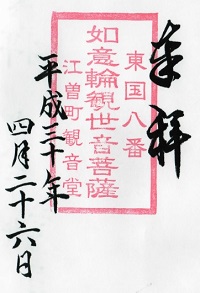 奉拝
東国八番
如意輪観世音菩薩
江曽町観音堂
平成三十年
四月二十六日